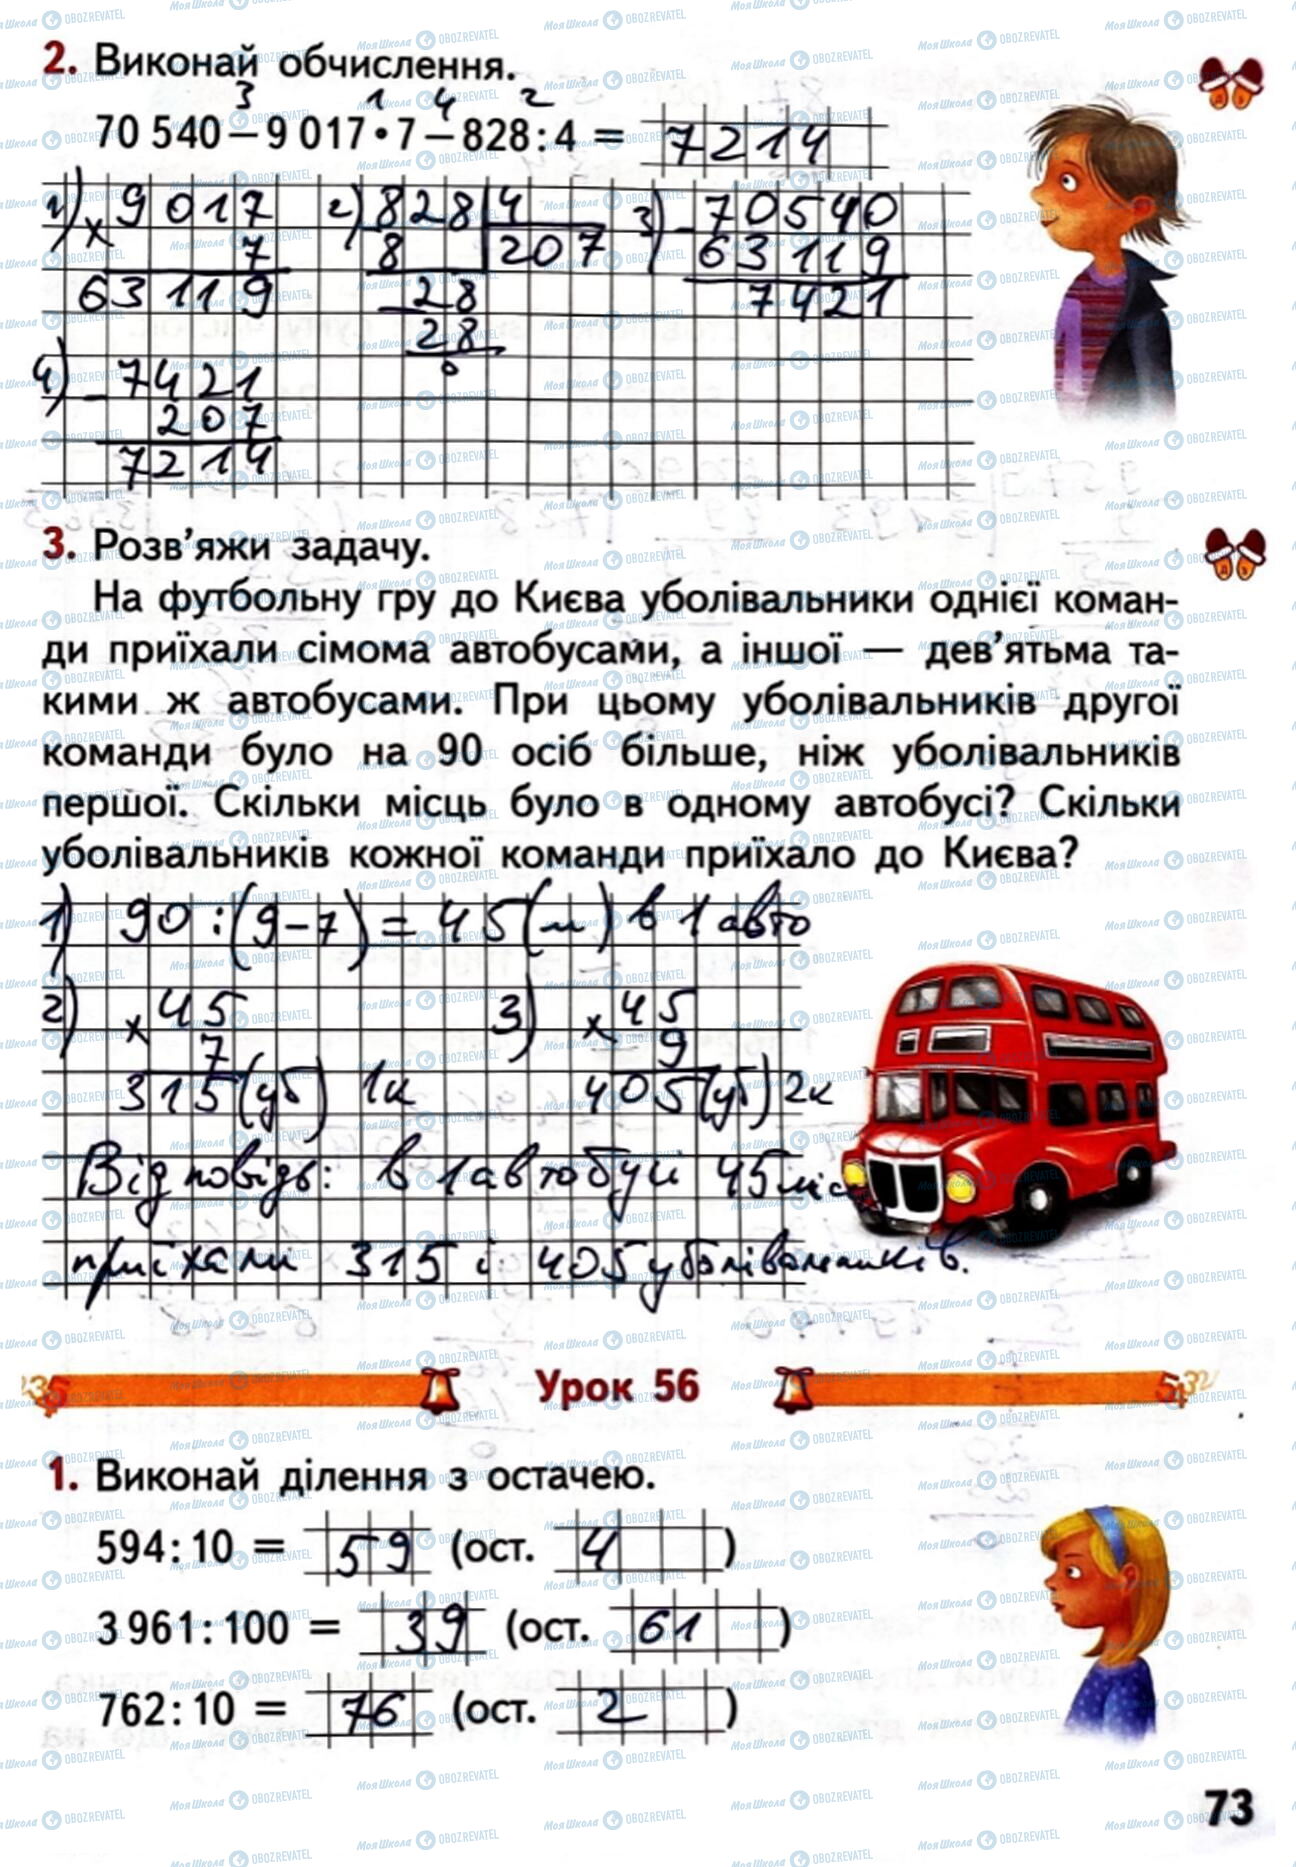 2. Виконай обчислення.
3 1 4 2
70 540 − 9 017 • 7 − 828 : 4 = 7214
1) × 9017 2) 828 | 4 3) − 70540
7 8 207 63119
63119 28 7421
28
0
4) − 7421
207
7214
3. Розв'яжи задачу.
На футбольну гру до Києва уболівальники однієї коман-
ди приїхали сімома автобусами, а іншої — дев'ятьма та-
кими ж автобусами. При цьому уболівальників другої
команди було на 90 осіб більше, ніж уболівальників
першої. Скільки місць було в одному автобусі? Скільки
уболівальників кожної команди приїхало до Києва?
1) 90 : (9 − 7) = 45 (м) в 1 авто
2) × 45 3) × 45
7 9
315 (уб) 1к 405 (уб) 2к
Відповідь: в 1 автобусі 45 міс
приїхали 315 і 405 уболівальників.
Урок 56
1. Виконай ділення з остачею.
594 : 10 = 59 (ост. 4)
3 961 : 100 = 39 (ост. 61)
762 : 10 = 76 (ост. 2)
73
МояШкола OBOZREVATEL